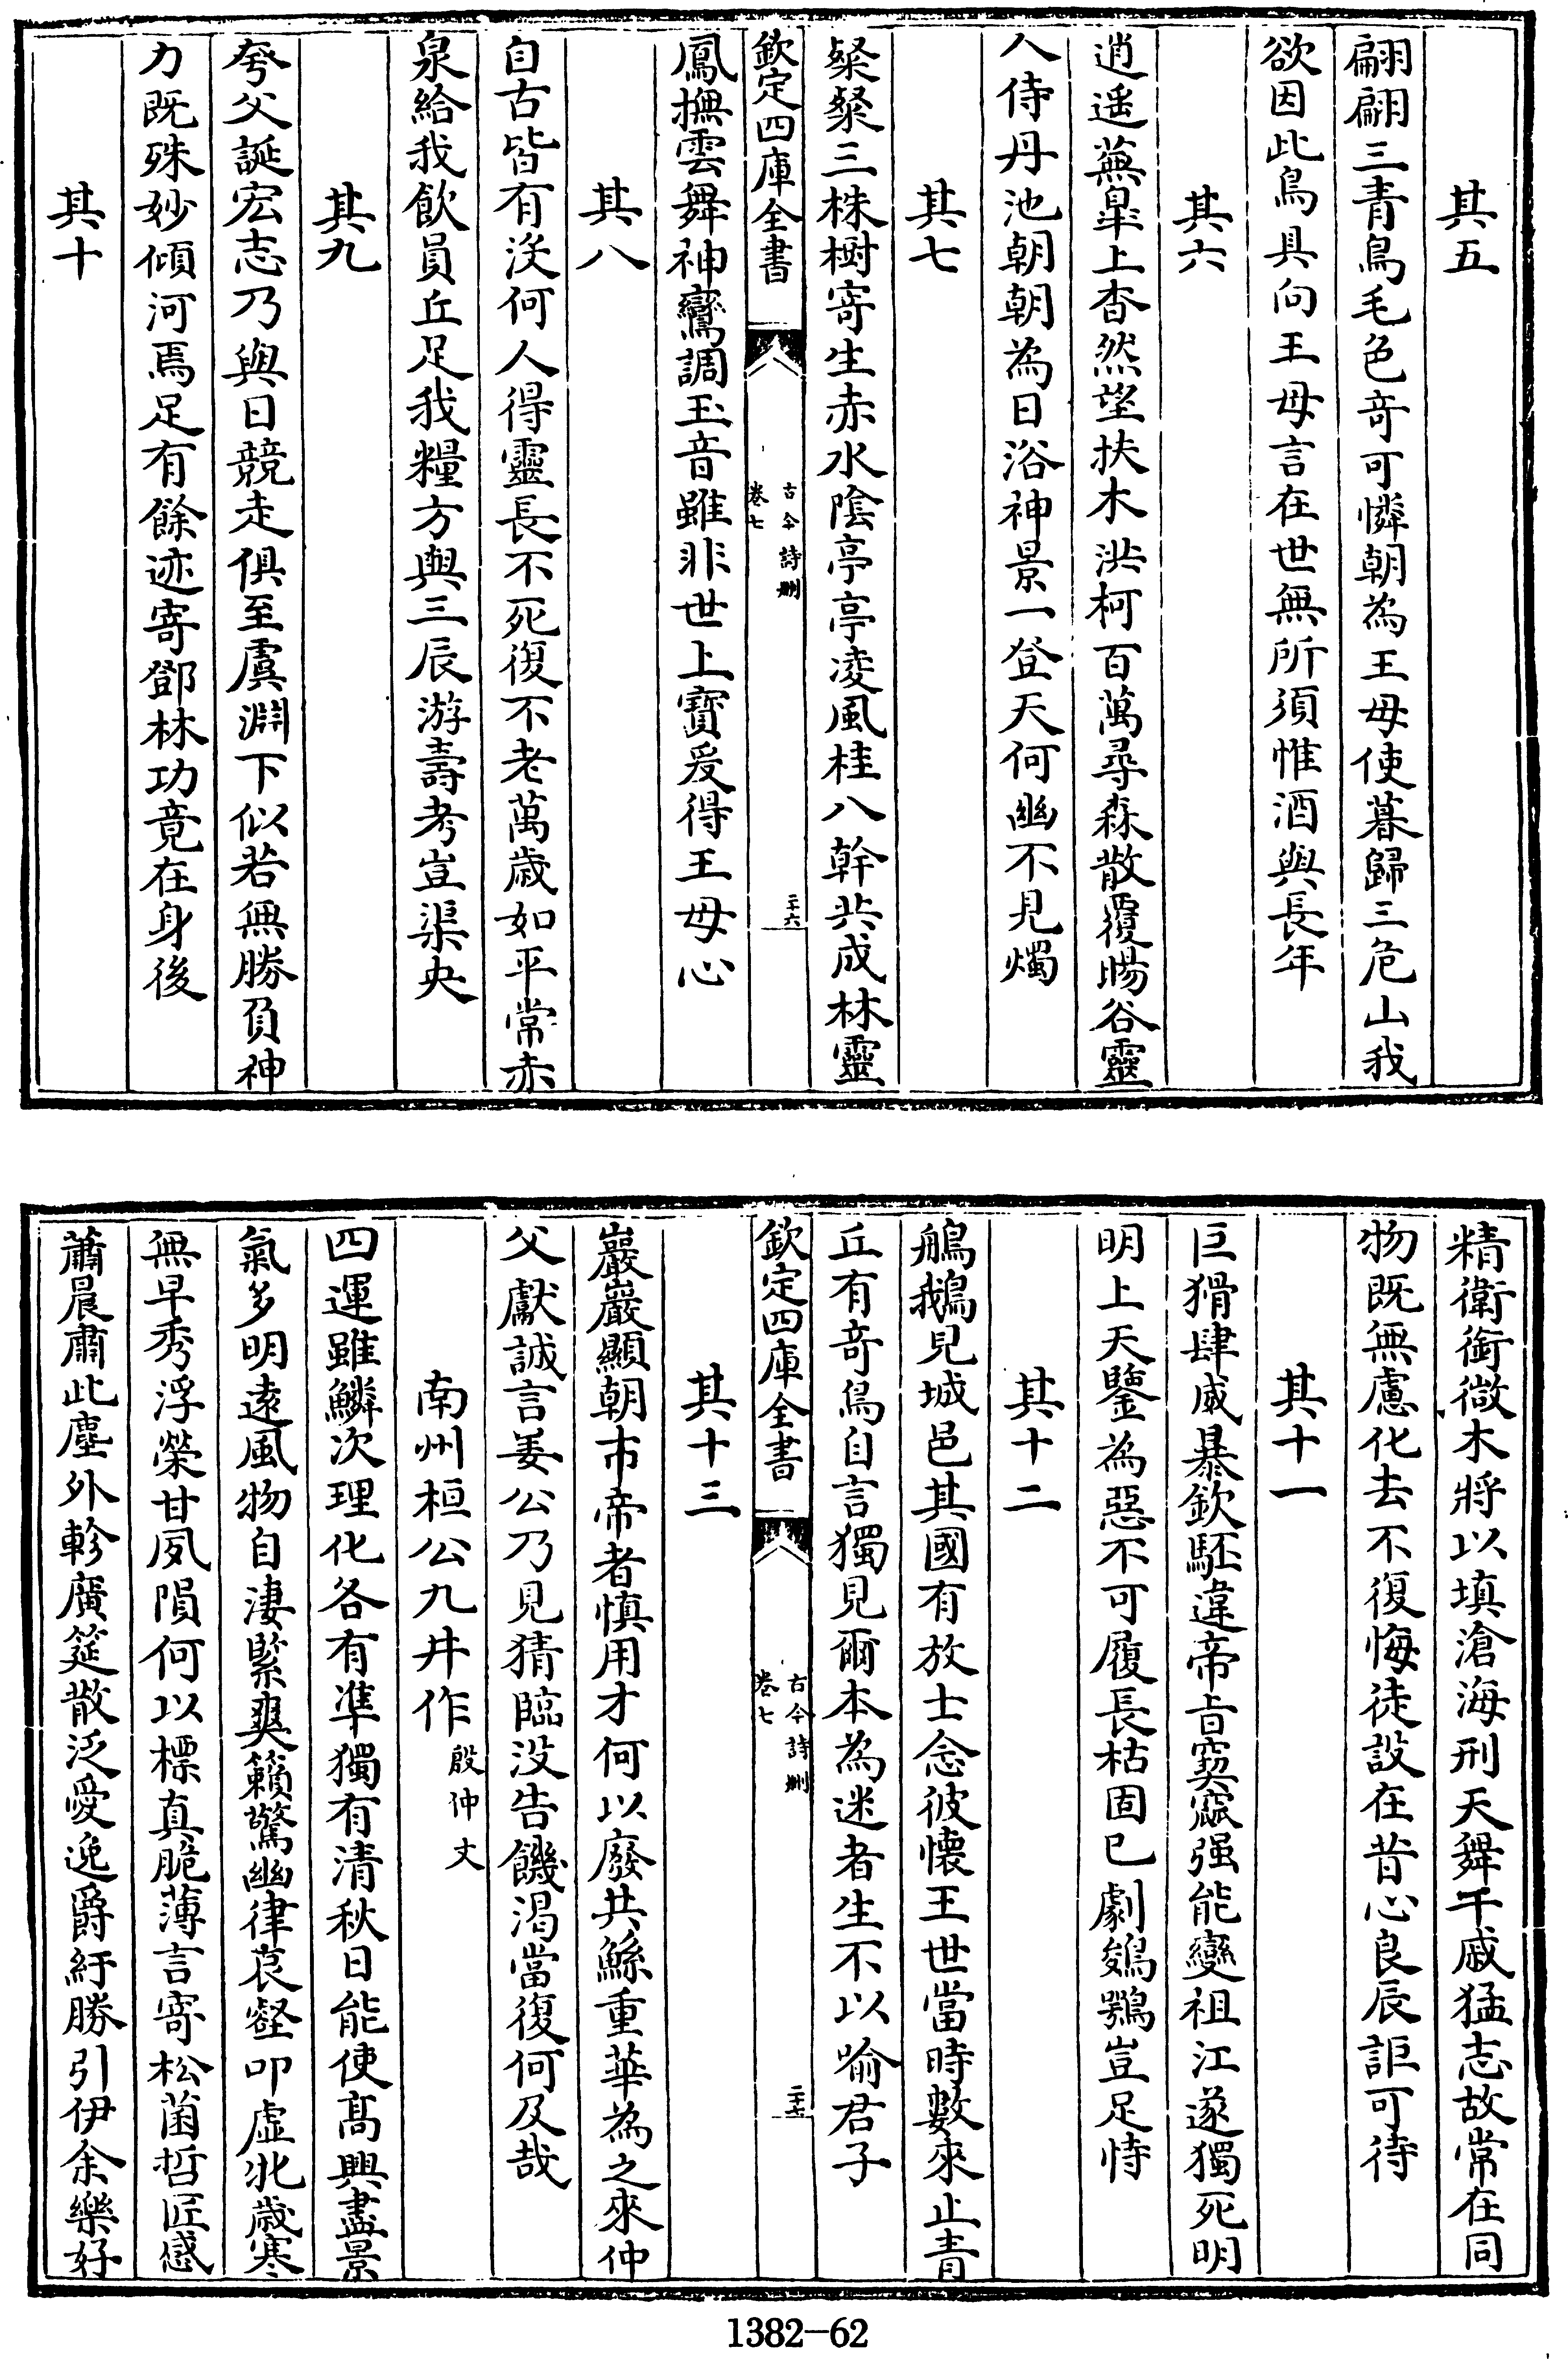 其五
翩翩三青鳥毛色奇可憐朝為王母使暮歸三危山我
欲因此鳥具向王母言在世無所須惟酒與長年
其六
逍遥蕪臯上杳然望扶木洪柯百萬尋森散覆暘谷靈
人侍丹池朝朝為日浴神景一登天何幽不見燭
其七
粲粲三株樹寄生赤水隂亭亭凌風桂八幹共成林靈
欽定四庫全書
古今詩刪
卷七
二十六
鳳撫雲舞神鸞調玉音雖非世上寶爰得王母心
其八
自古皆有没何人得靈長不死復不老萬歲如平常赤
泉給我飲員丘足我糧方與三辰游壽考豈渠央
其九
夸父誕宏志乃與日競走俱至虞淵下似若無勝負神
力既殊妙傾河焉足有餘迹寄鄧林功竟在身後
其十
精衛銜微木將以填滄海刑天舞干戚猛志故常在同
物既無慮化去不復悔徒設在昔心良辰詎可待
其十一
巨猾肆威暴欽駓違帝旨窫窳强能變祖江遂獨死明
明上天鑒為惡不可履長枯固已劇鵕鶚豈足恃
其十二
鵃鵝見城邑其國有放士念彼懷王世當時數來止青
丘有奇鳥自言獨見爾本為迷者生不以喻君子
欽定四庫全書
古今詩刪
卷七
二十七
其十三
巖巖顯朝市帝者慎用才何以廢共鯀重華為之來仲
父獻誠言姜公乃見猜臨没告饑渴當復何及哉
南州桓公九井作殷仲文
四運雖鱗次理化各有準獨有清秋日能使髙興盡景
氣多明遠風物自凄緊爽籟驚幽律哀壑叩虚牝歲寒
無早秀浮榮甘夙隕何以標貞脆薄言寄松菌哲匠感
蕭晨肅此塵外軫廣筵散泛愛逸爵紆勝引伊余樂好
1382-62